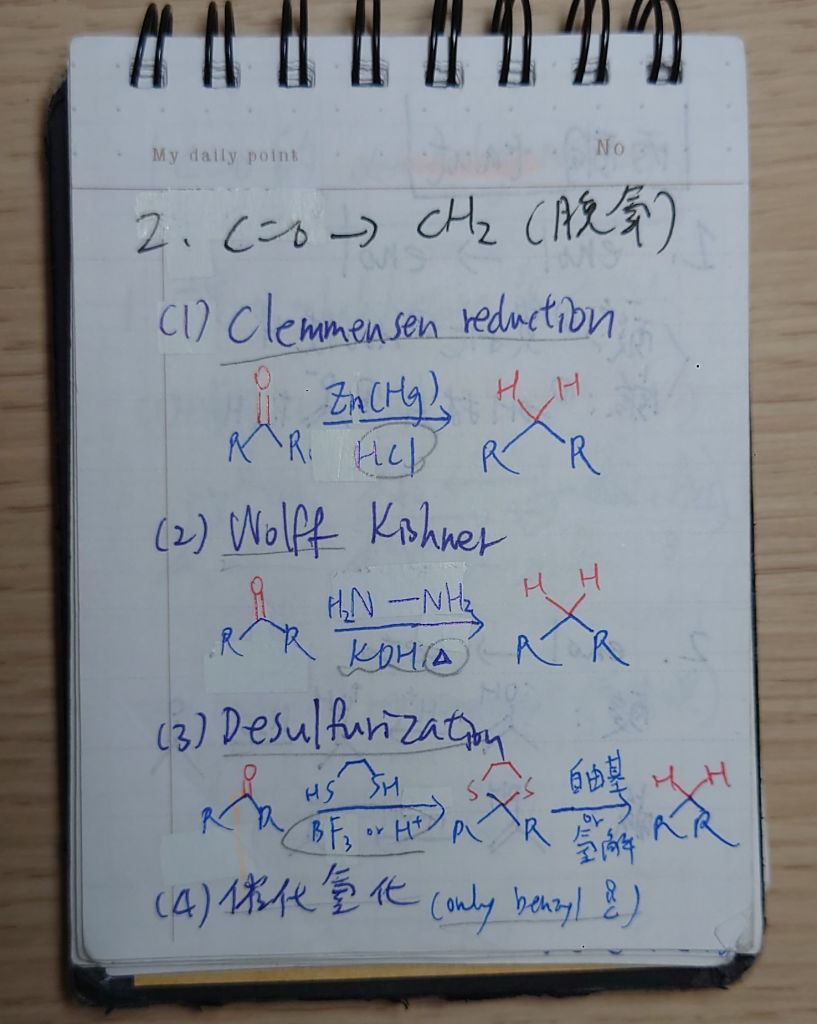 My daily point No
2. C=O → CH₂ (脫氧)
(1) Clemmensen reduction
O Zn(Hg) H H
R R HCl R R
(2) Wolff Kishner
O H₂N—NH₂ H H
R R KOH, Δ R R
(3) Desulfurization
O HS SH S S 自由基 H H
R R BF₃ or H⁺ R R or R R
氫解
(4) 催化氫化 (only benzyl C=O)